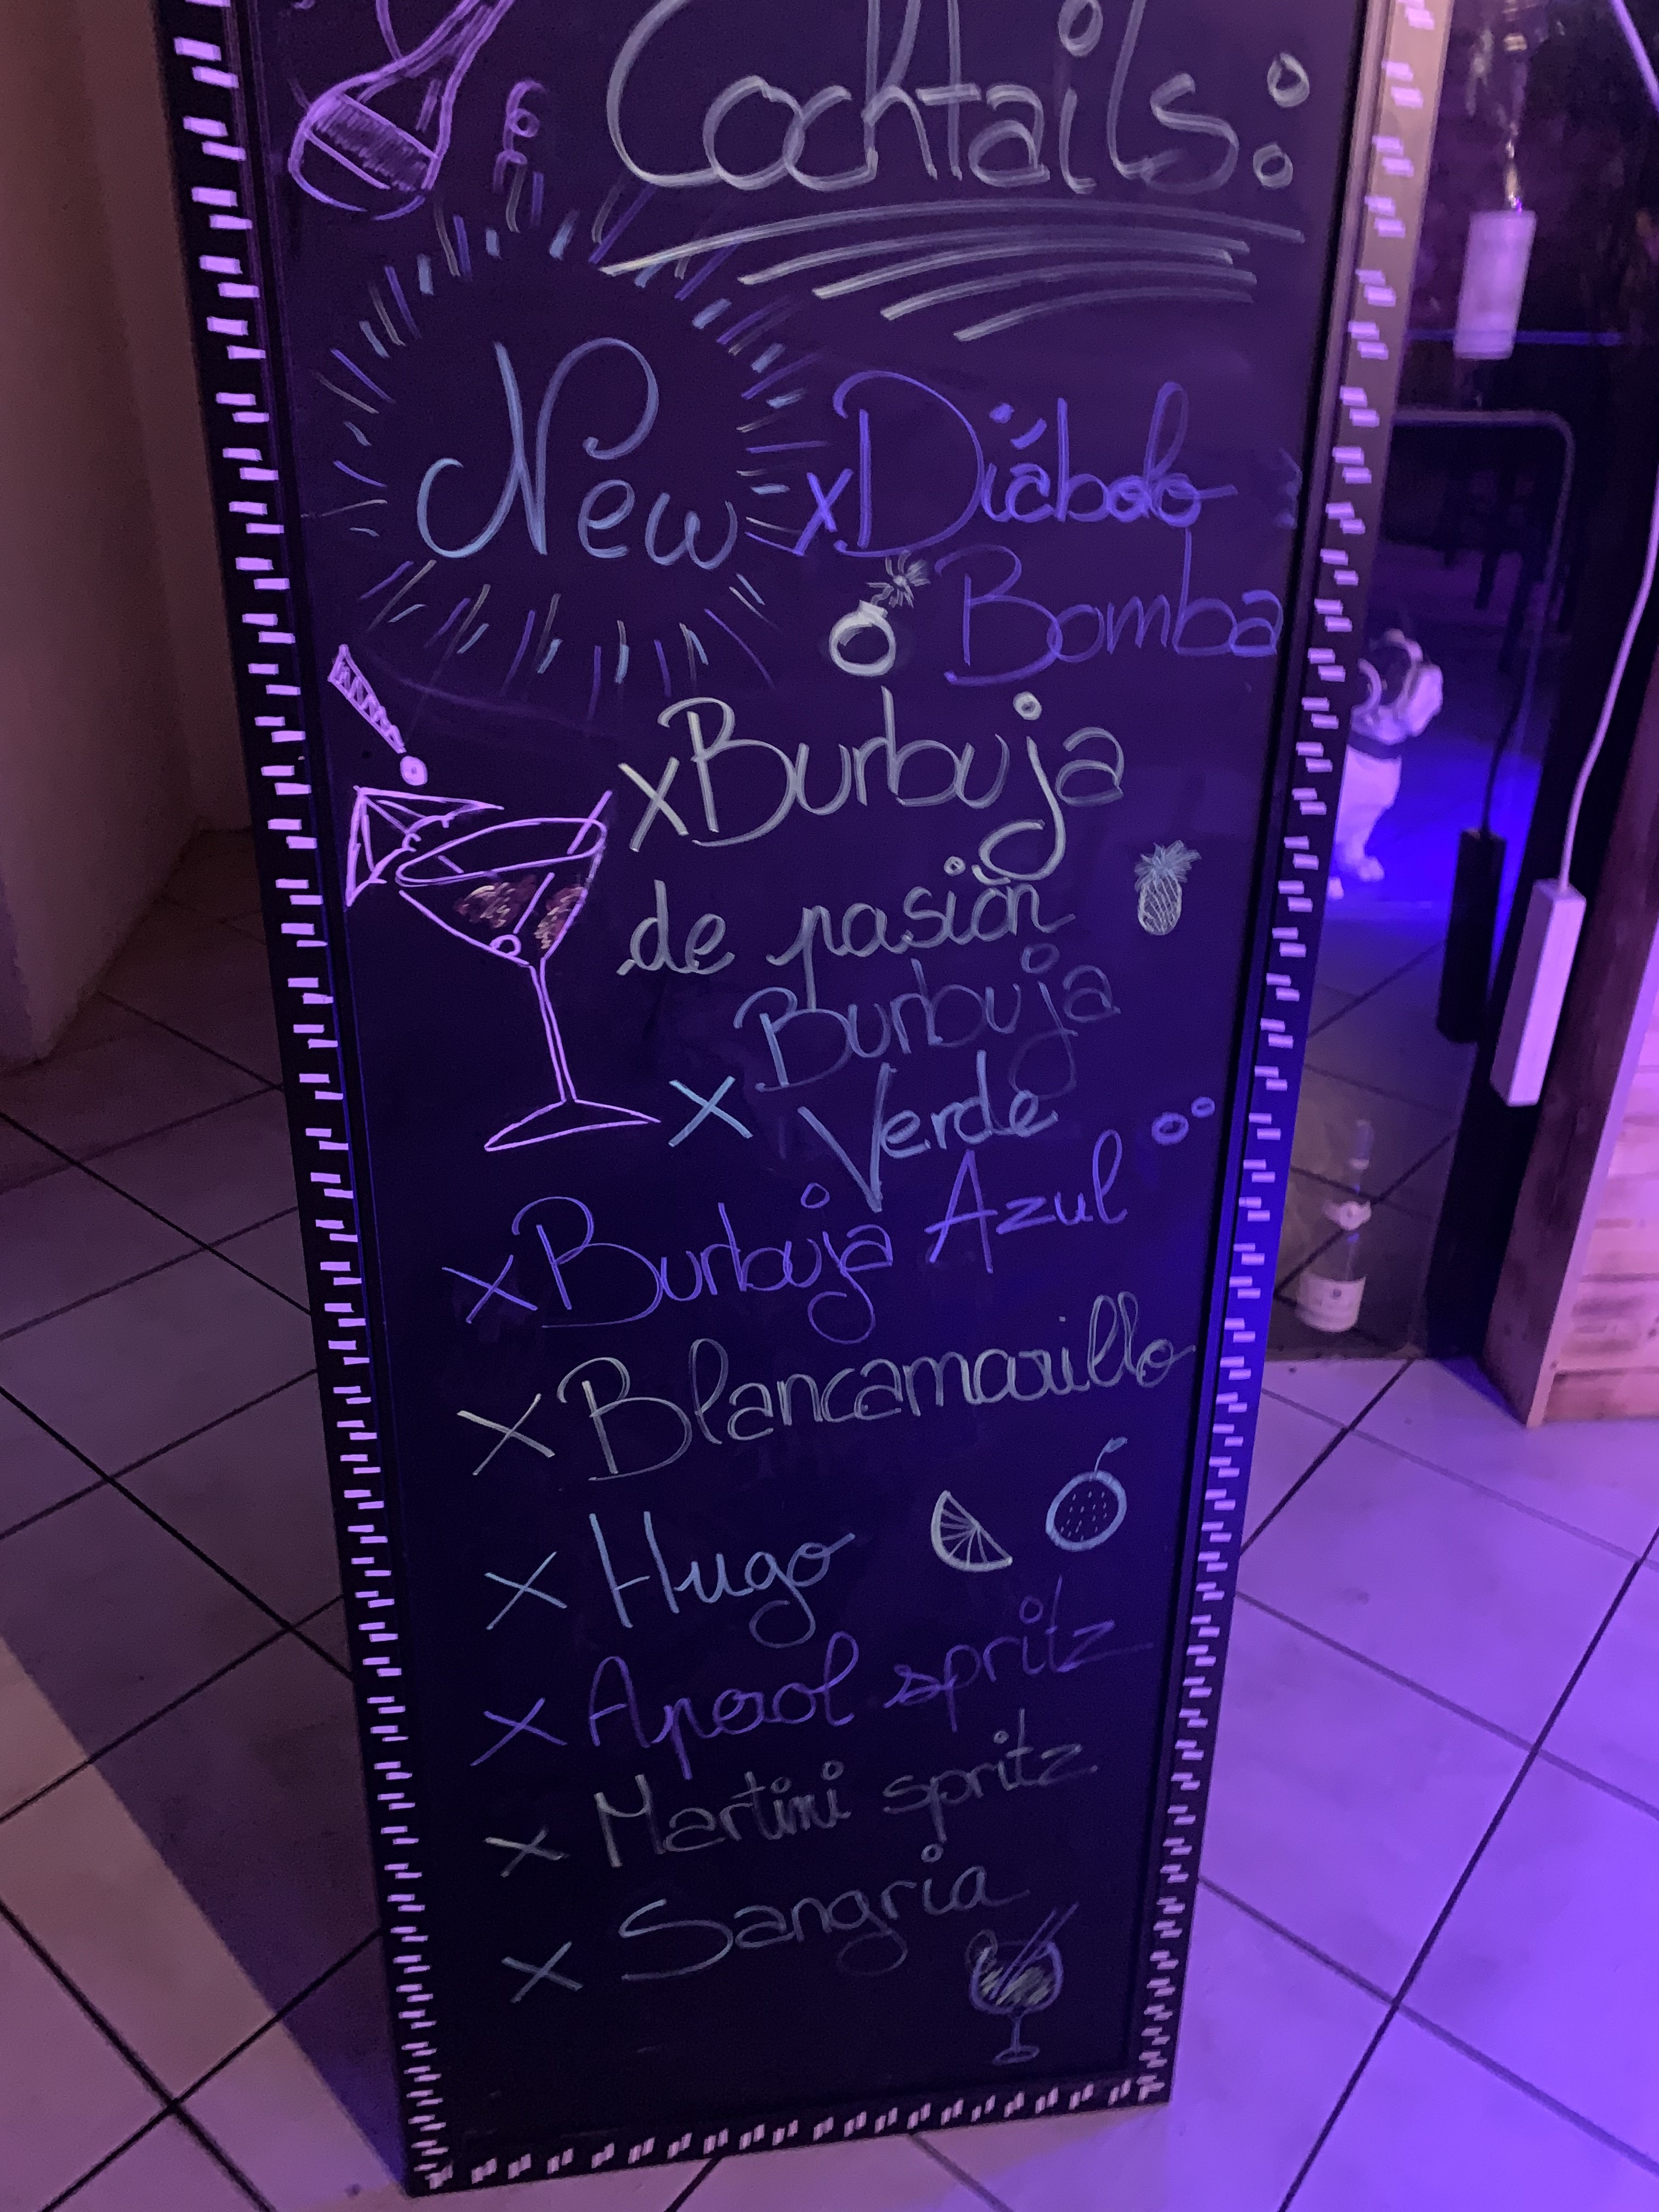 Cocktails:
New
x Diábolo
Bomba
x Burbuja
de pasión
x Burbuja
Verde
x Burbuja Azul
x Blancamarillo
x Hugo
x Aperol spritz
x Martini spritz
x Sangria